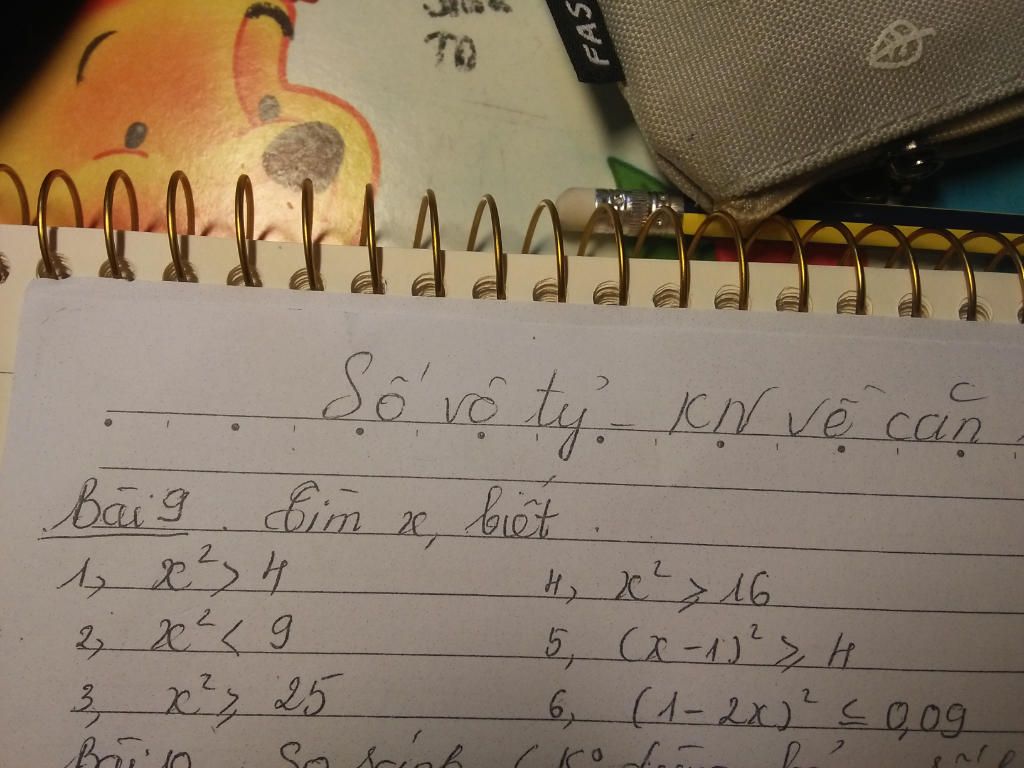 TO
FAS
Số vô tỷ - KN về căn
Bài 9. Tìm x, biết.
1, x² > 4
2, x² < 9
3, x² ⩾ 25
4, x² ⩾ 16
5, (x-1)² ⩾ 4
6, (1-2x)² ≤ 0,09
Bài 10. So sánh (K°